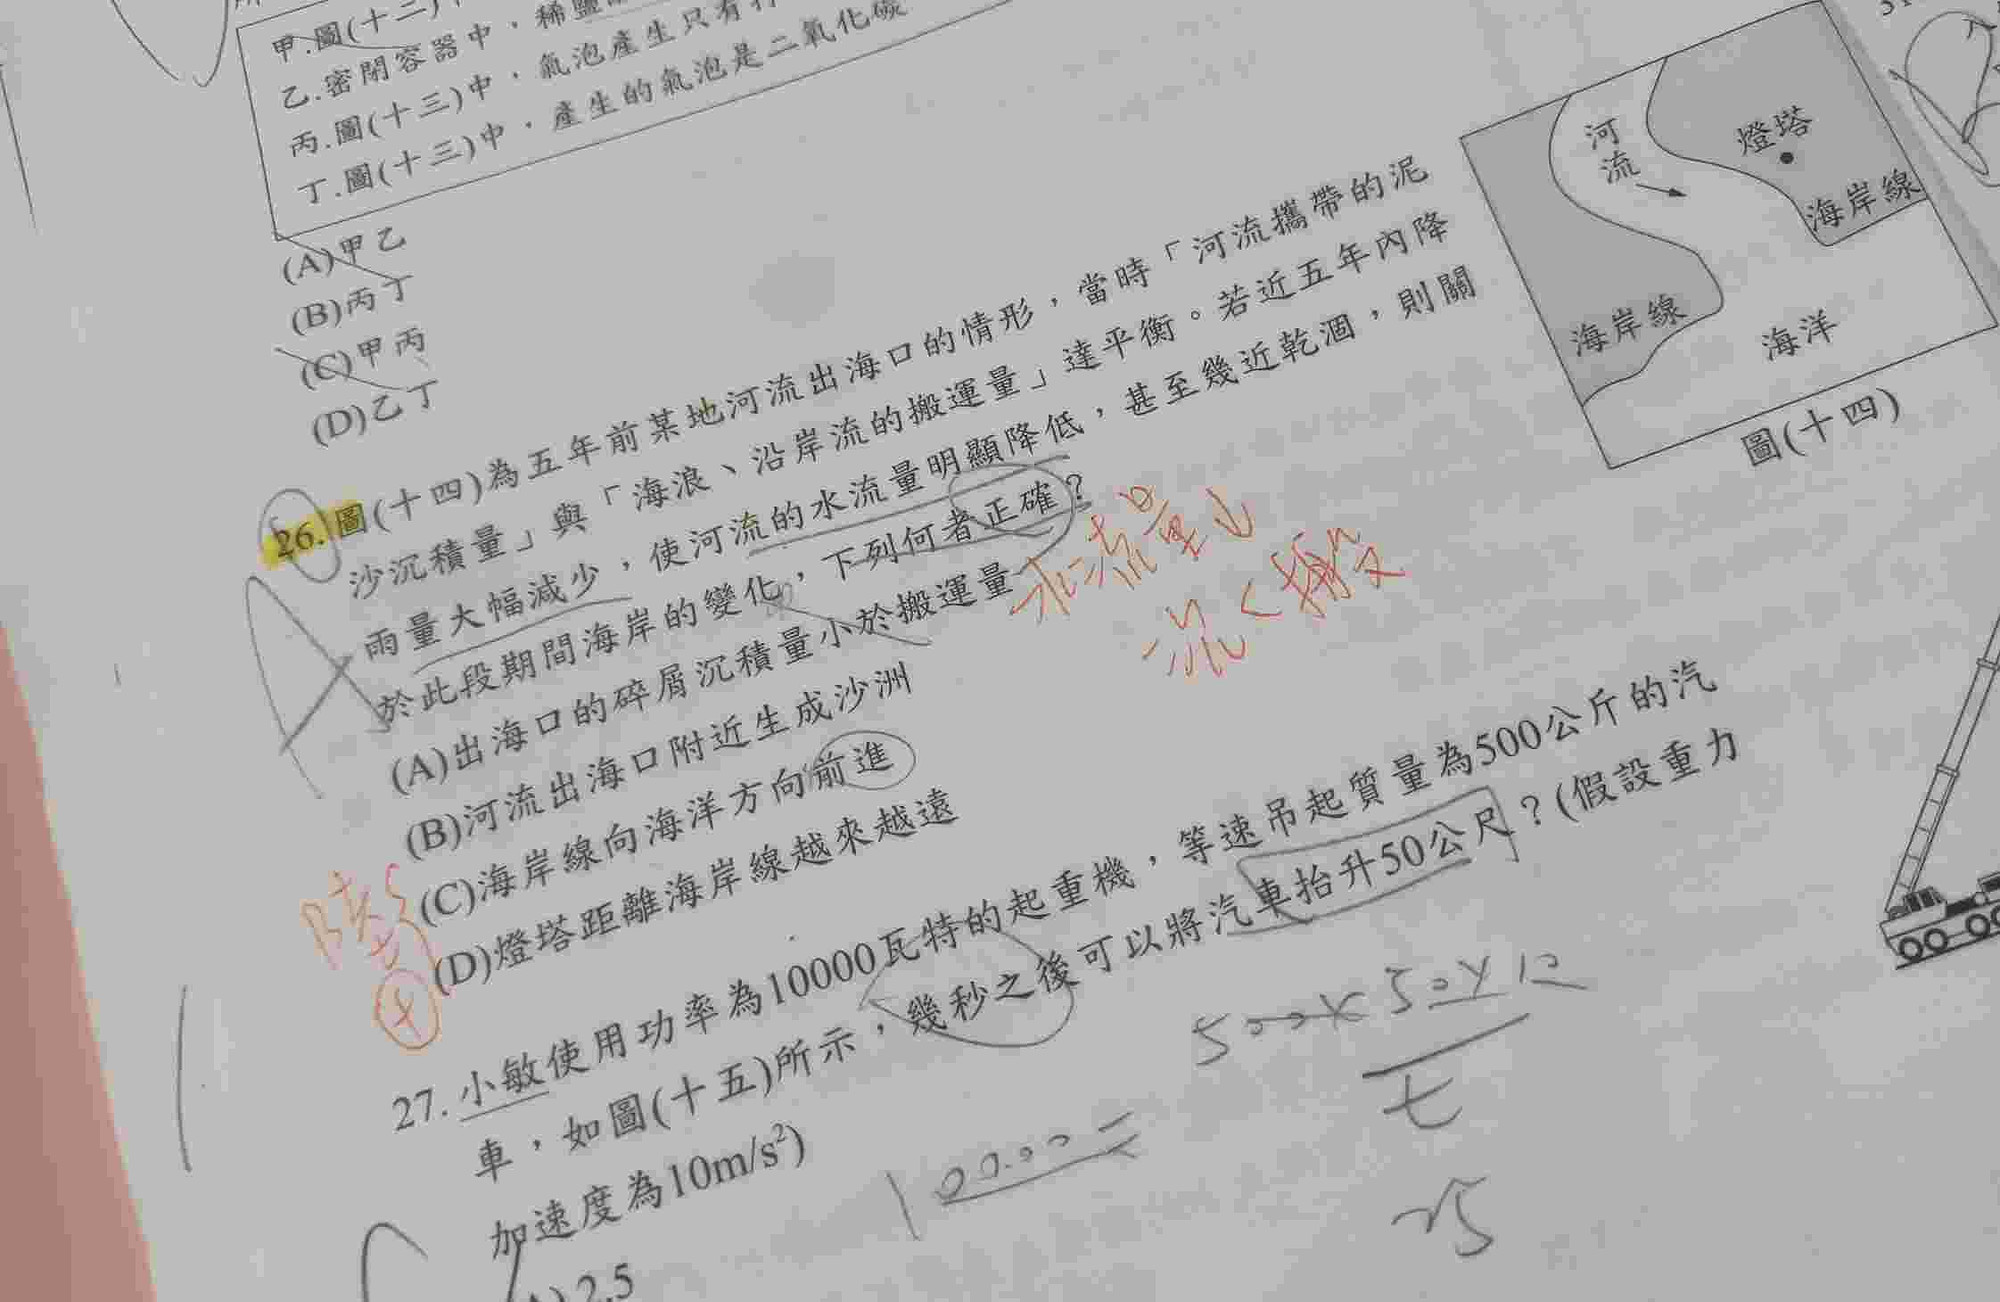 甲.圖(十二)
乙.密閉容器中，稀鹽
丙.圖(十三)中，氣泡產生只有
丁.圖(十三)中，產生的氣泡是二氧化碳
(A)甲乙
(B)丙丁
(C)甲丙
(D)乙丁
26.圖(十四)為五年前某地河流出海口的情形，當時「河流攜帶的泥
沙沉積量」與「海浪、沿岸流的搬運量」達平衡。若近五年內降
雨量大幅減少，使河流的水流量明顯降低，甚至幾近乾涸，則關
於此段期間海岸的變化，下列何者正確？
水流量↓
沉<搬
(A)出海口的碎屑沉積量小於搬運量
(B)河流出海口附近生成沙洲
(C)海岸線向海洋方向前進
(D)燈塔距離海岸線越來越遠
河流
燈塔
海岸線
海岸線
海洋
圖(十四)
27.小敏使用功率為10000瓦特的起重機，等速吊起質量為500公斤的汽
車，如圖(十五)所示，幾秒之後可以將汽車抬升50公尺？(假設重力
加速度為10m/s²)
500×50×10
t
10000=
25
2.5